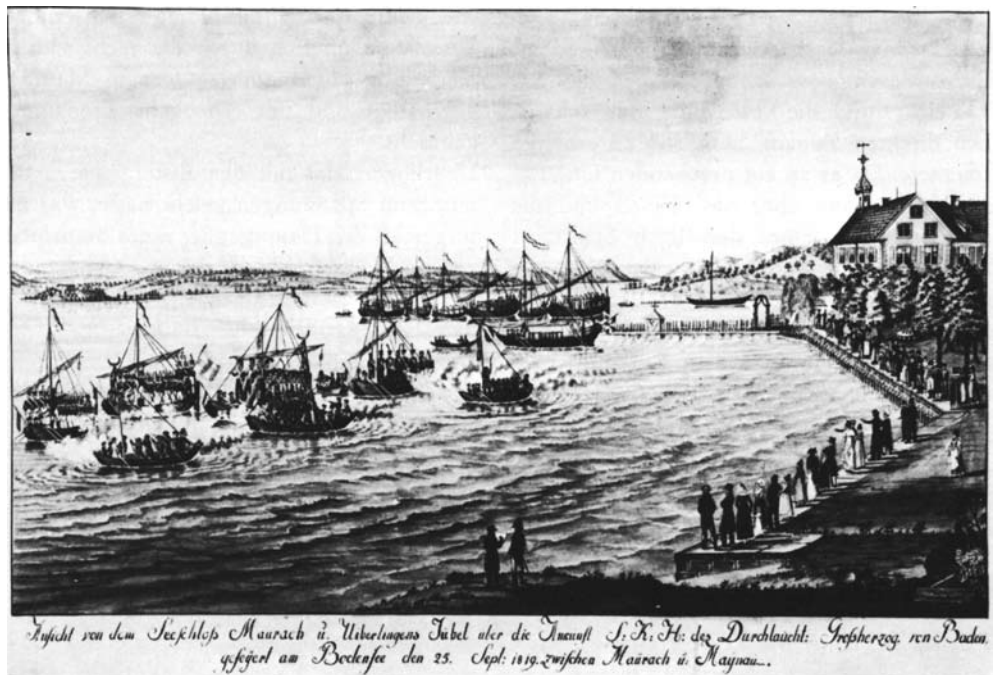 Ansicht von dem Seeschloß Maurach ü. Uiberlingens Jubel uber die Ankunft S: K: H: des Durchlaucht: Großherzog von Baden.
gefeÿert am Bodensee den 25. Sept: 1819. zwischen Maurach ü: Maÿnau.